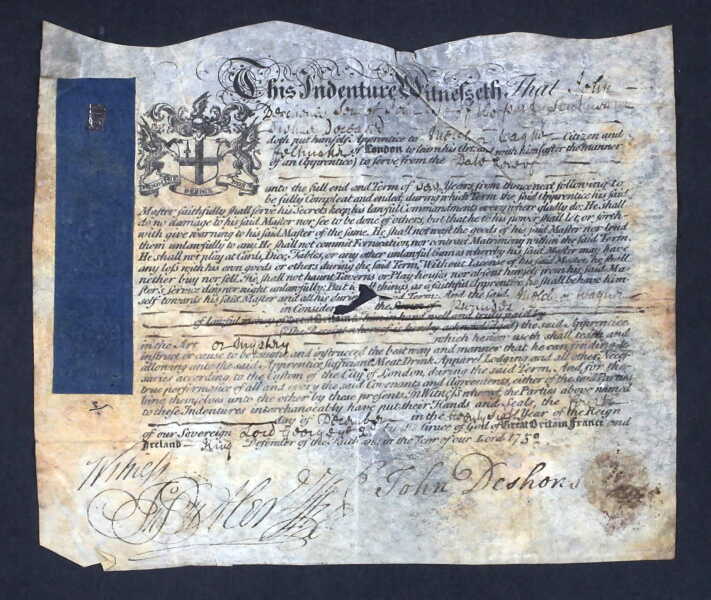 This Indenture Witnesseth, That John
Son of
Deceas'd
doth put himself Apprentice to Citizen and
of London to learn his Art, and with him (after the manner
of an Apprentice) to serve from the Date hereof
unto the full end and Term of Years, from thence next following to
be fully Compleat and ended; during which Term the said Apprentice his said
Master faithfully shall serve his Secrets keep his lawful Commandments every where gladly do. He shall
do no damage to his said Master nor see to be done of others, but that he to his power shall let, or forth-
with give warning to his said Master of the same. He shall not wast the goods of his said Master nor lend
them unlawfully to any. He shall not commit Fornication, nor contract Matrimony within the said Term.
He shall not play at Cards, Dice, Tables, or any other unlawful Games whereby his said Master may have
any loss with his own goods or others during the said Term, Without Licence of his said Master, he shall
neither buy nor sell. He shall not haunt Taverns or Play-houses nor absent himself from his said Ma-
ster's Service day nor night unlawfully. But in things, as a faithful Apprentice he shall behave him-
self towards his said Master and all his during Term. And the said
in Consider the
of lawful money of Great Britain hand well and truly paid by
(the Receipt whereof is hereby acknowledged) the said Apprentice
in the Art or Mystery which he now useth shall teach and
instruct or cause to be taught and instructed the best way and manner that he can, finding &
allowing unto the said Apprentice sufficient Meat Drink Apparel Lodging and all other Neces-
saries according to the Custom of the City of London, during the said Term. And for the
true performance of all and every the said Covenants and Agreements, either of the said Parties
bind themselves unto the other by these presents. In Witness whereof, the Parties above named
to these Indentures interchangeably have put their Hands and Seals, the
day of December in the Year of the Reign
of our Sovereign Lord George by the Grace of God of Great Britain France and
Ireland King Defender of the Faith, and in the Year of our Lord 175
Witness
John Deshons